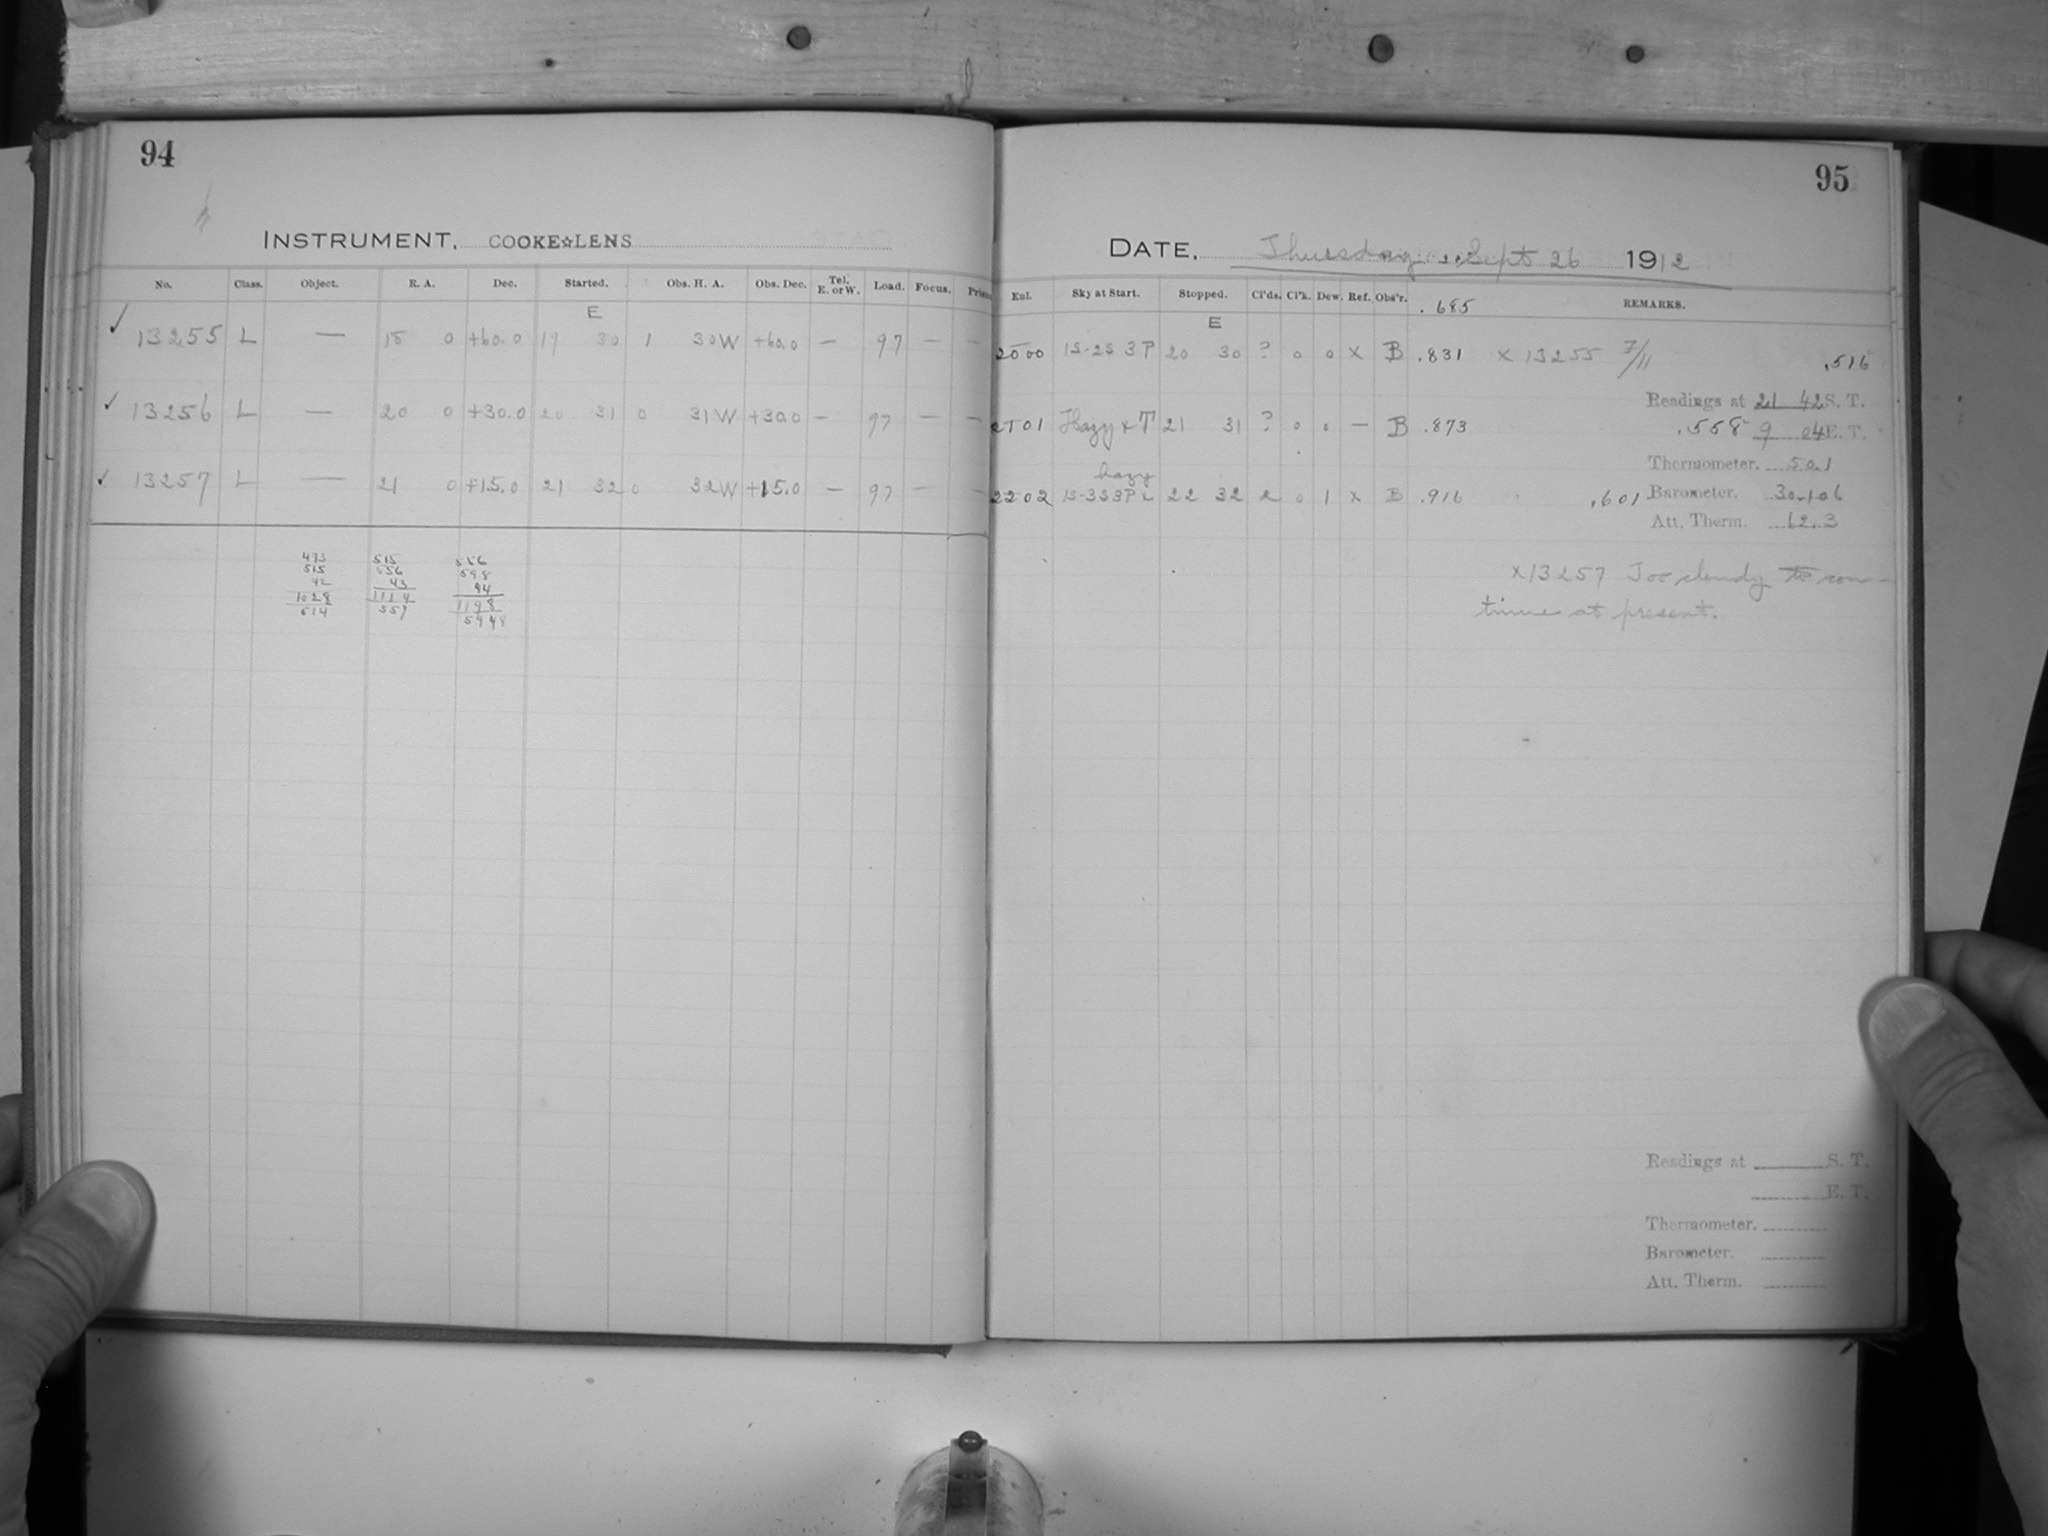 94
INSTRUMENT, COOKE☆LENS
No. Class. Object. R. A. Dec. Started. Obs. H. A. Obs. Dec. Tel. E. or W. Load. Focus. Prism
E
✓ 13255 L — 18 0 +60.0 19 30 1 30W +60.0 — 97 — —
✓ 13256 L — 20 0 +30.0 20 31 0 31W +30.0 — 97 — —
✓ 13257 L — 21 0 +15.0 21 32 0 32W +15.0 — 97 — —
473 515 556
515 556 598
42 43 94
1028 1114 1198
514 557 5948
95
DATE, Thursday, Sept 26 1912
Eul. Sky at Start. Stopped. Cl'ds. Cl'k. Dew. Ref. Obs'r. .685 REMARKS.
E
2000 1S-2S 3P 20 30 ? 0 0 x B .831 x 13255 7/11 .516
Readings at 21 42 S. T.
2101 Hazy & T 21 31 ? 0 0 — B .873 .558 9 04 E. T.
Thermometer. 50.1
hazy
2202 1S-3S3P & 22 32 2 0 1 x B .916 .601 Barometer. 30.106
Att. Therm. 62.3
x13257 Too cloudy to con-
tinue at present.
Readings at S. T.
E. T.
Thermometer.
Barometer.
Att. Therm.